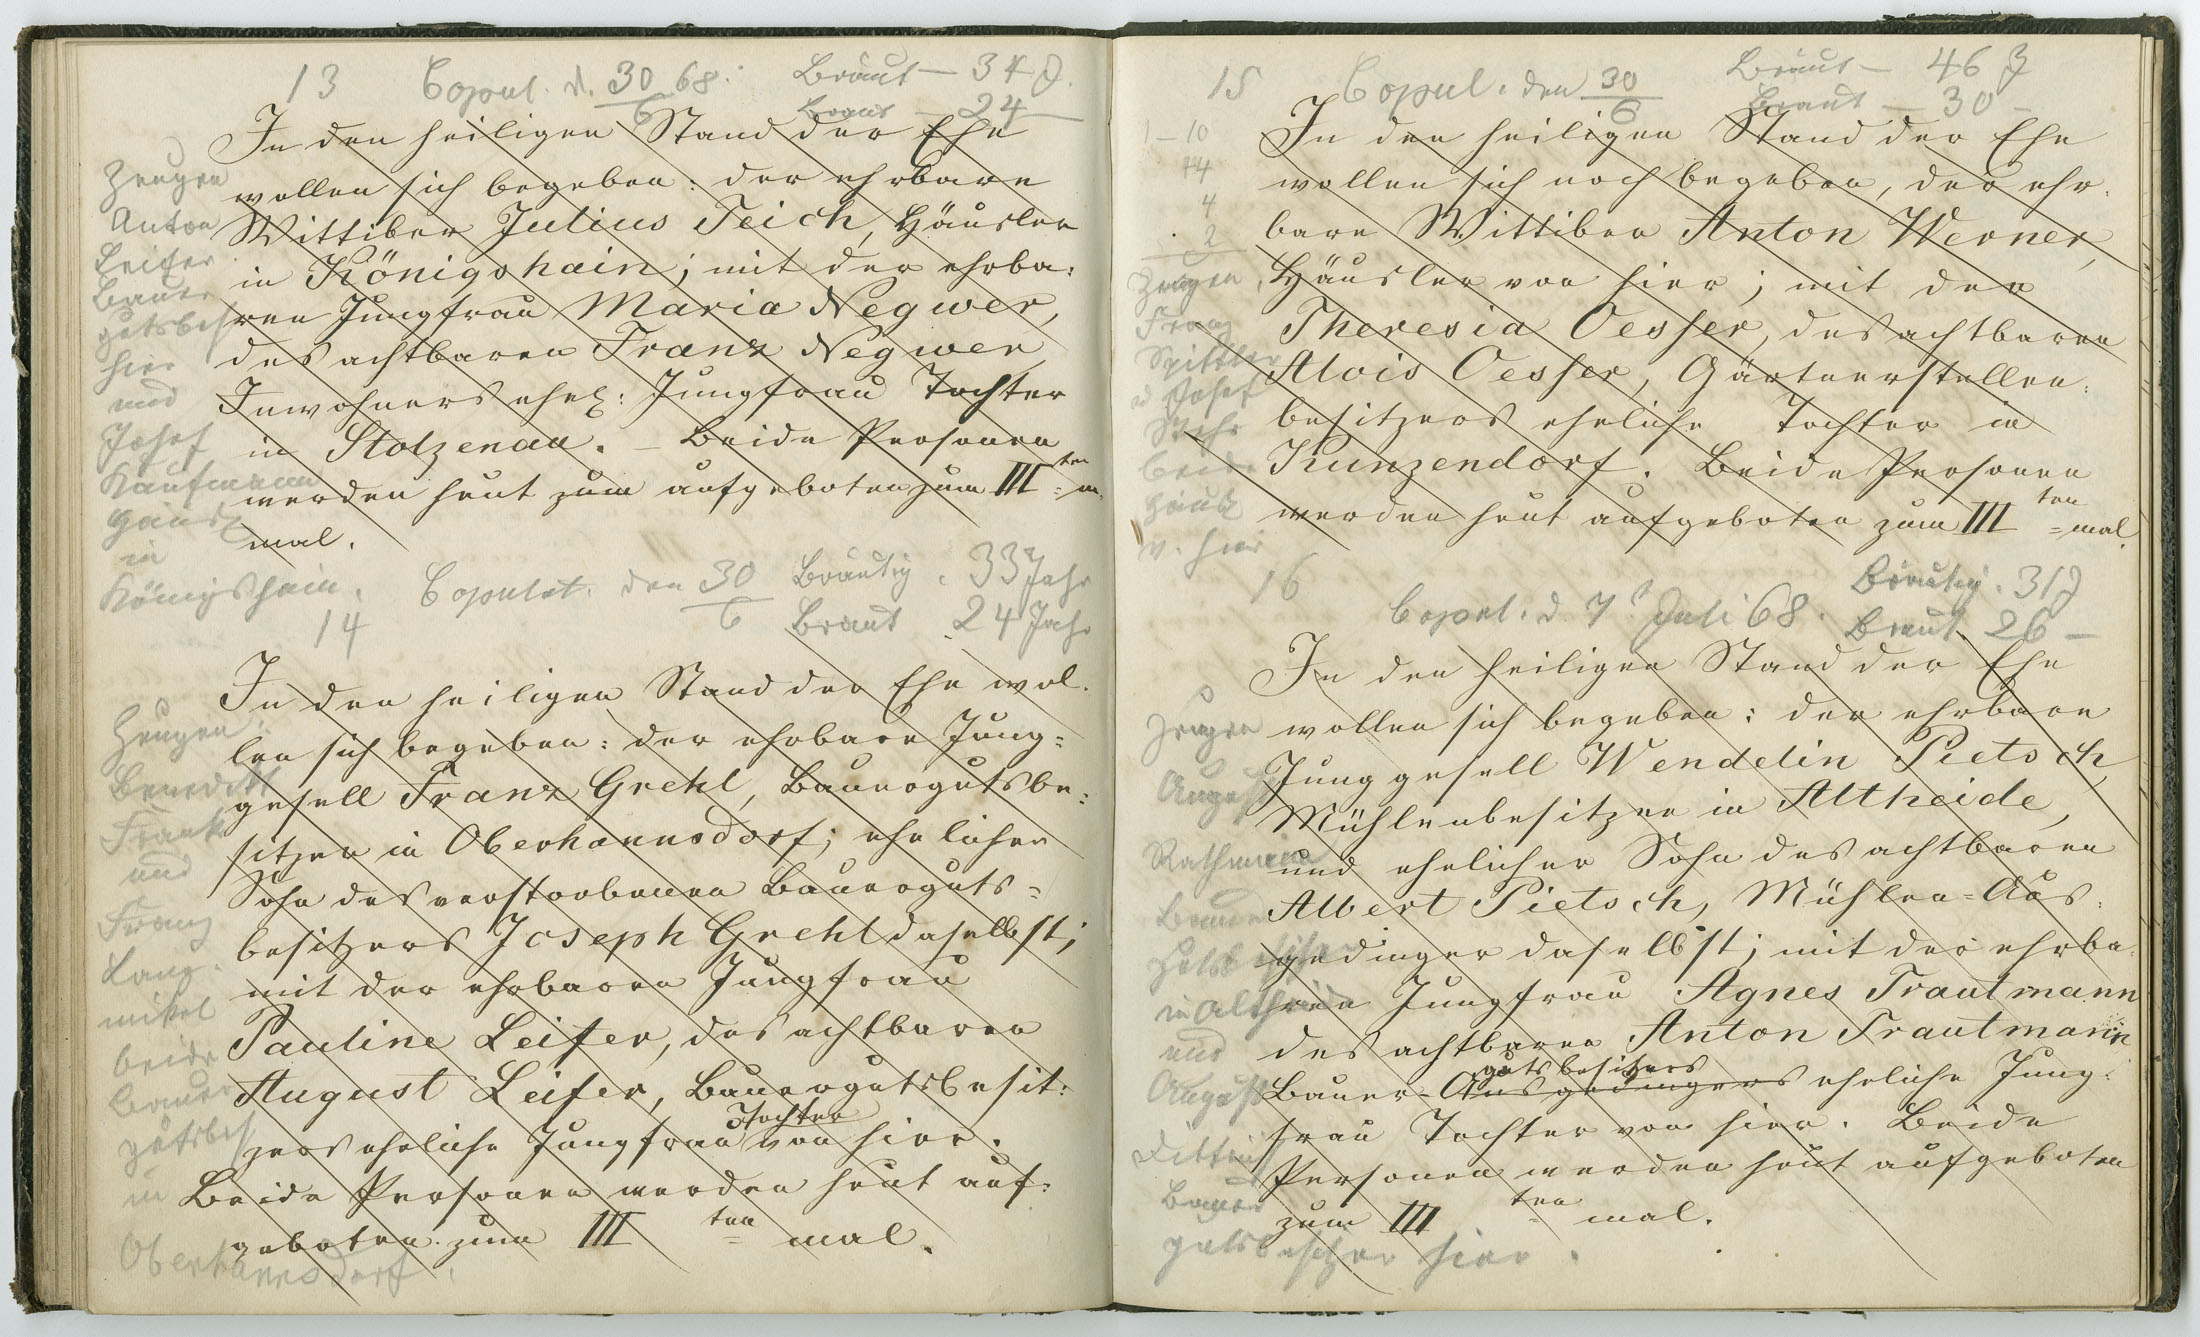 13 Copul. d. 30/6 68. Bräut — 34 J.
Braut — 24 —
In den heiligen Stand der Ehe
wollen sich begeben: der ehrbare
Wittiber Julius Teich, Häusler
in Königshain; mit der ehrba:
ren Jungfrau Maria Negwer,
des achtbaren Franz Negwer
Inwohners ehel: Jungfrau Tochter
in Stolzenau. — Beide Personen
werden heut zum aufgeboten zum III ten
mal.
Zeugen
Anton
Leifer
Bauer
gutsbes
hier
und
Josef
Kaufmann
Häusl
in
Königshain.
14 Copulat. den 30/6 Bräutig. 33 Jahr
Braut 24 Jahr
In den heiligen Stand der Ehe wol-
len sich begeben: der ehrbare Jung=
gesell Franz Grehl, Bauergutsbe:
sitzer in Oberhannsdorf; ehelicher
Sohn des verstorbenen Bauerguts=
besitzers Joseph Grehl daselbst;
mit der ehrbaren Jungfrau
Pauline Leifer, des achtbaren
August Leifer, Bauergutsbesit:
zers eheliche Jungfrau Tochter von hier.
Beide Personen werden heut auf:
geboten zum III ten = mal.
Zeugen:
Benedikt
Franke
und
Franz
Lang-
nikel
beide
Bauer
gutsbes
in
Oberhannsdorf.
15 Copul. den 30/6 Bräut — 46 J
Braut — 30 —
In den heiligen Stand der Ehe
wollen sich noch begeben, der ehr-
bare Wittiber Anton Werner,
Häusler von hier; mit der
Theresia Oesser, des achtbaren
Alois Oesser, Gärtnerstellen:
besitzers eheliche Tochter in
Kunzendorf. Beide Personen
werden heut aufgeboten zum III ten = mal.
1 — 10
14
4
2
Zeugen
Franz
Spittler
u Josef
beide
Häusl
v. hier
16 Copul. d. 7t Juli 68. Bräutig. 31 J
Braut 26 —
In den heiligen Stand der Ehe
wollen sich begeben: der ehrbare
Junggesell Wendelin Pietsch,
Mühlenbesitzer in Altheide,
und ehelicher Sohn des achtbaren
Albert Pietsch, Mühlen=Aus:
gedinger daselbst; mit der ehrba-
ren Jungfrau Agnes Trautmann
des achtbaren Anton Trautmann
Bauer-Ausgedingers gutsbesitzers eheliche Jung:
frau Tochter von hier. Beide
Personen werden heut aufgeboten
zum III ten = mal.
Zeugen
August
Rathmann
Bauer
gutsbesitzer
in Altheide
und
August
Dittrich
Bauer
gutsbesitzer hier.